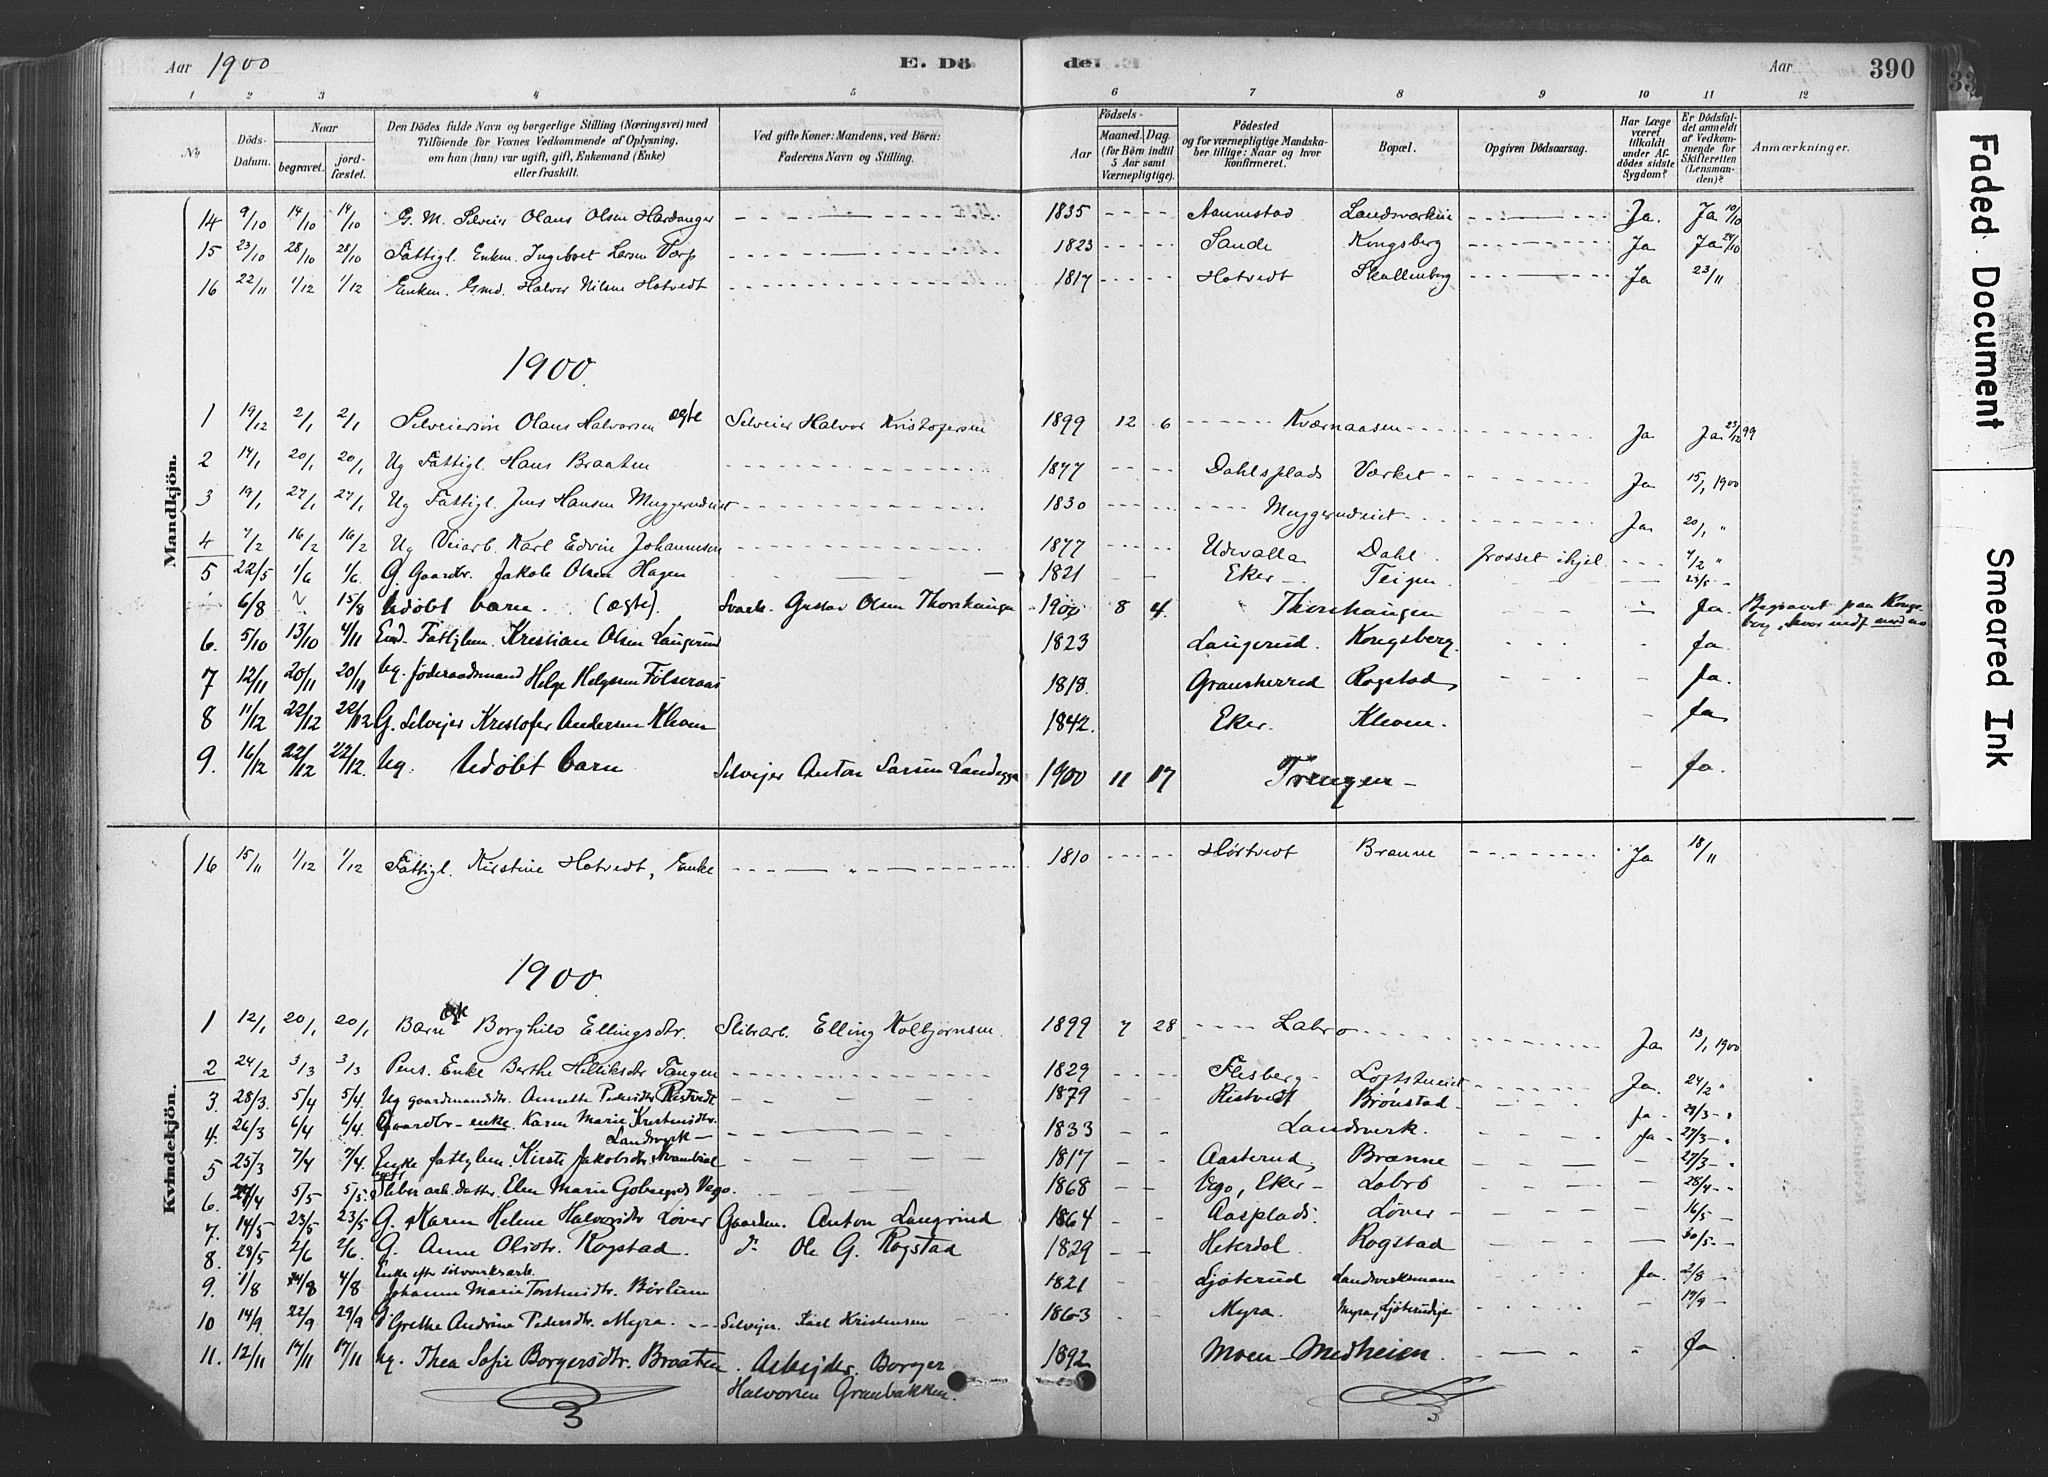 Aar 1900
E. Dö
de
Aar
390
1 2 3 4 5 6 7 8 9 10 11 12
No
Döds-Datum.
Naar
begravet.
jord-fæstet.
Den Dödes fulde Navn og borgerlige Stilling (Næringsvei) med
Tilföiende for Voxnes Vedkommende af Oplysning,
om han (hun) var ugift, gift, Enkemand (Enke)
eller fraskilt.
Ved gifte Koner: Mandens, ved Börn:
Faderens Navn og Stilling.
Födsels-
Aar
Maaned. Dag.
(for Börn indtil
5 Aar samt
Værnepligtige).
Födested
og for værnepligtige Mandska-
ber tillige: Naar og hvor
konfirmeret.
Bopæl.
Opgiven Dödsaarsag.
Har Læge
været
tilkaldt
under Af-
dödes sidste
Sygdom?
Er Dödsfal-
det anmeldt
af Vedkom-
mende for
Skifteretten
(Lensman-
den)?
Anmærkninger.
Mandkjön.
14 9/10 14/10 14/10 G. M. Selveier Olaus Olsen Hardanger 1835 Landsværkeie Ja. Ja 10/10
15 23/10 28/10 28/10 Fattigl. Enkm. Ingebret Larsen Torp 1823 Sande Kongsberg Ja Ja 24/10
16 22/11 1/12 1/12 Enkm. Gmd. Halvor Nilsen Hotvedt 1817 Hotvedt Skollenborg Ja 23/11
1900.
1 19/12 2/1 2/1 Selveiersön Olaus Halvorsen ægte Selveier Halvor Kristofersen 1899 12 6 Kværnaasen Ja Ja 23/12 99
2 14/1 20/1 20/1 Ug Fattigl. Hans Braaten 1877 Dahlsplads Værket Ja 15/1 1900
3 19/1 27/1 27/1 Ug Fattigl. Jens Hansen Muggerudeiet 1830 Muggerudeiet Ja 20/1 "
4 7/2 16/2 16/2 Ug Veiarb. Karl Edvin Johannesen 1877 Udevalla Dahl frosset ihjel 7/2 "
5 22/5 1/6 1/6. G. Gaardbr. Jakob Olsen Hagen 1821 Eker Teigen 23/5
6/8 15/8 Udöbt barn. (ægte). Gustav Olsen Thorshaugen 1900 8 4. Thorshaugen Ja. Begravet paa Kongs-
berg, hvor
6. 5/10 13/10 4/11 Kristian Olsen Laugerud 1823 Laugerud. Kongsberg. Ja.
7 12/11 20/11 20/11 Ug. föderaadsmand Helge Helgesen Fölseraas 1818. Gransherred Rogstad Ja.
8 11/12 22/12 22/12 G. Selveijer Kristofer Andersen Kleven 1842. Eker. Kleven. Ja
9. 16/12 22/12 22/12. Ug. Udöbt barn Selveijer Anton Larsen 1900 11 17 Ja.
Kvindekjön.
16 15/11 1/12 1/12 Fattigl. Kirstine Hotvedt, Enke 1810 Hörtvedt Brænne Ja 18/11
1900.
1 12/1 20/1 20/1 Barn ægte Borghild Ellingsdtr. Slibarb. Elling Kolbjörnsen 1899 7 28 Labro Ja 13/1 1900
2 24/2 3/3 3/3 Pens. Enke Berthe Tangen 1829 Flesberg Ja. 24/2 "
3. 28/3. 5/4 5/4. Ug gaardmandsdtr. Annette Pedersdtr Ristvedt 1879 Ristvedt Brönstad Ja 29/3 "
4. 26/3 6/4 6/4. Gaardbr enke. Karen Marie Kristensdtr.
Landsverk 1833 Landsverk. Ja 27/3 "
5 25/3 7/4 7/4. Enke Kirsti Jakobsdtr 1817 Aasterud, Brænne 27/3
6. 5/5 5/5. datter. Elen Marie Vego. 1868 Vego, Eker Labro 28/4
7. 14/5 23/5 23/5 G. Karen Helene Halvorsdtr Löver Gaardm. Anton Laugerud 1864 Aasplads. Löver 16/5
8. 28/5 2/6 2/6. G. Anne Olsdtr. Rogstad. Ole G. Rogstad 1829 Heterdal. Rogstad 30/5
9. 1/8 4/8 4/8 Enke efter sölvverksarb.
Johanne Marie Torstensdtr. 1821 Sjöterud Ja. 2/8
10 14/9. 22/9 29/9 G Grethe Andrine Pedersdtr. Myra. Selveijer. Karl Kristensen 1863 Myra. 17/9
11. 12/11 17/11 17/11 Ug. Thea Sofie Borgersdtr. Braaten. Arbeijder. Borger
Halvorsen Granbakken. 1892 Moen Medheien. Ja
Faded Document
Smeared Ink